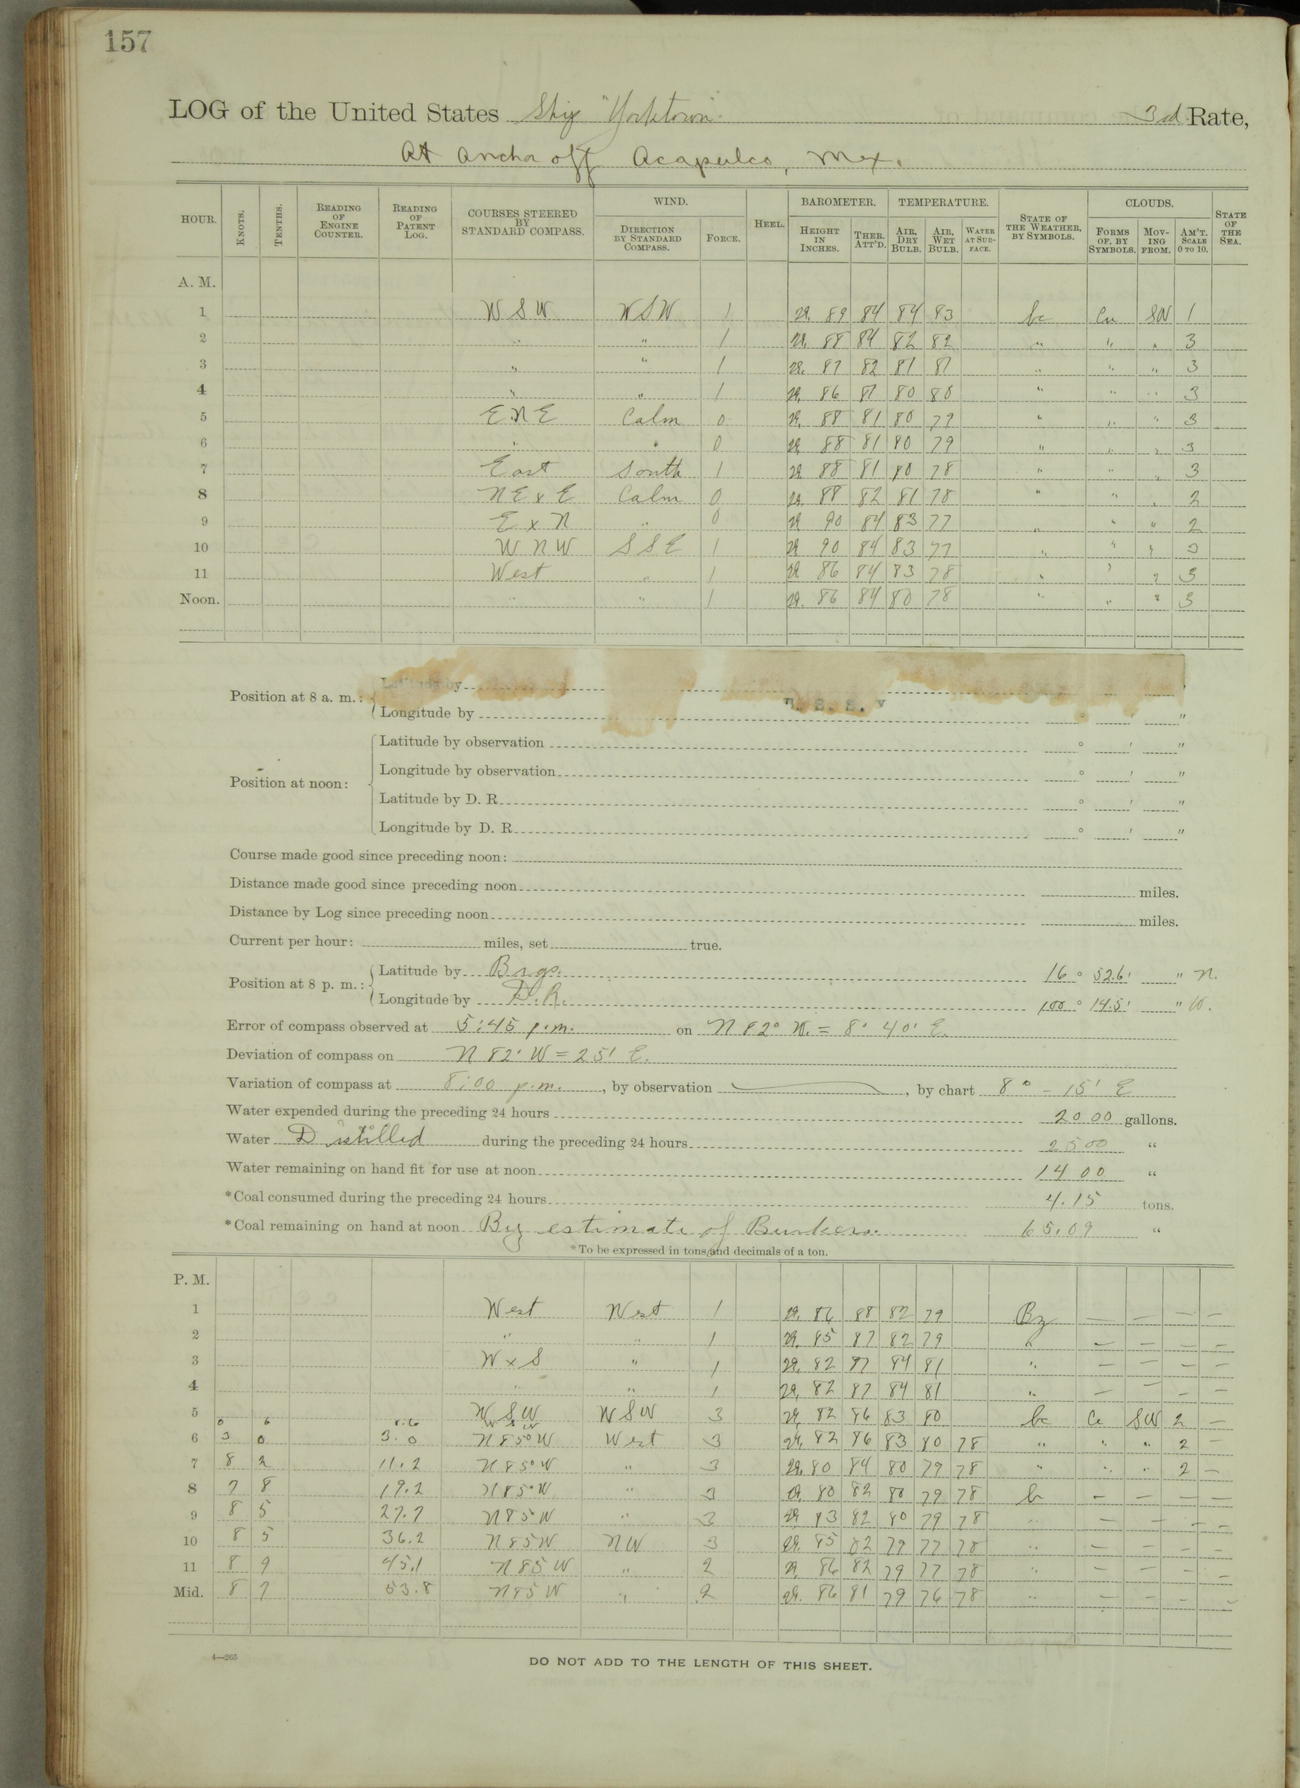 157
LOG of the United States Ship "Yorktown" 3rd Rate,
At anchor off Acapulco, Mex.
HOUR. KNOTS. TENTHS. READING OF ENGINE COUNTER. READING OF PATENT LOG. COURSES STEERED BY STANDARD COMPASS. WIND. DIRECTION BY STANDARD COMPASS. FORCE. HEEL. BAROMETER. HEIGHT IN INCHES. THER. ATT'D. TEMPERATURE. AIR, DRY BULB. AIR, WET BULB. WATER AT SURFACE. STATE OF THE WEATHER, BY SYMBOLS. CLOUDS. FORMS OF, BY SYMBOLS. MOVING FROM. AM'T. SCALE 0 TO 10. STATE OF THE SEA.
A. M.
1 W S W W S W 1 29. 89 84 84 83 bc Cu SW 1
2 " " 1 29. 88 84 82 82 " " " 3
3 " " 1 29. 87 82 81 81 " " " 3
4 " " 1 29. 86 81 80 80 " " " 3
5 E N E Calm 0 29. 88 81 80 79 " " " 3
6 " " 0 29 88 81 80 79 " " " 3
7 East South 1 29 88 81 80 78 " " " 3
8 N E x E Calm 0 29. 88 82 81 78 " " " 2
9 E x N " 0 29 90 84 83 77 " " " 2
10 W N W S S E 1 29 90 84 83 77 " " "
11 West " 1 29 86 84 83 78 " " " 3
Noon. " " 1 29. 86 84 80 78 " " " 3
Position at 8 a. m.: Latitude by
Longitude by ° ' "
Position at noon: Latitude by observation ° ' "
Longitude by observation ° ' "
Latitude by D. R. ° ' "
Longitude by D. R. ° ' "
Course made good since preceding noon:
Distance made good since preceding noon miles.
Distance by Log since preceding noon miles.
Current per hour: miles, set true.
Position at 8 p. m.: Latitude by Brgs. 16 ° 52.6 ' " N.
Longitude by D.R. 100 ° 14.5 ' " W.
Error of compass observed at 5:45 p.m. on N 82° W. = 8° 40' E.
Deviation of compass on N 82° W = 25' E.
Variation of compass at 8:00 p.m., by observation , by chart 8° - 15' E
Water expended during the preceding 24 hours 2000 gallons.
Water Distilled during the preceding 24 hours 2500 "
Water remaining on hand fit for use at noon 1400 "
*Coal consumed during the preceding 24 hours 4.15 tons.
*Coal remaining on hand at noon By estimate of Bunkers. 65.09 "
*To be expressed in tons and decimals of a ton.
P. M.
1 West West 1 29. 86 88 82 79 Bz — — — —
2 " " 1 29. 85 87 82 79 " — — — —
3 W x S " 1 29. 82 87 84 81 " — — — —
4 " " 1 29. 82 87 84 81 " — — — —
5 0 6 W S W W S W 3 29. 82 86 83 80 bc Cu SW 2 —
6 3 0 3.0 W S W N 85° W West 3 29. 82 86 83 80 78 " " " 2 —
7 8 2 11.2 N 85° W " 3 29. 80 84 80 79 78 " " " 2 —
8 7 8 19.2 N 85° W " 3 29. 80 82 80 79 78 b — — — —
9 8 5 27.7 N 85 W " 3 29 83 82 80 79 78 " — — — —
10 8 5 36.2 N 85 W NW 3 29. 85 82 79 77 78 " — — — —
11 8 9 45.1 N 85 W " 2 29. 86 82 79 77 78 " — — — —
Mid. 8 7 53.8 N 85 W " 2 29. 86 81 79 76 78 " — — — —
4—265
DO NOT ADD TO THE LENGTH OF THIS SHEET.